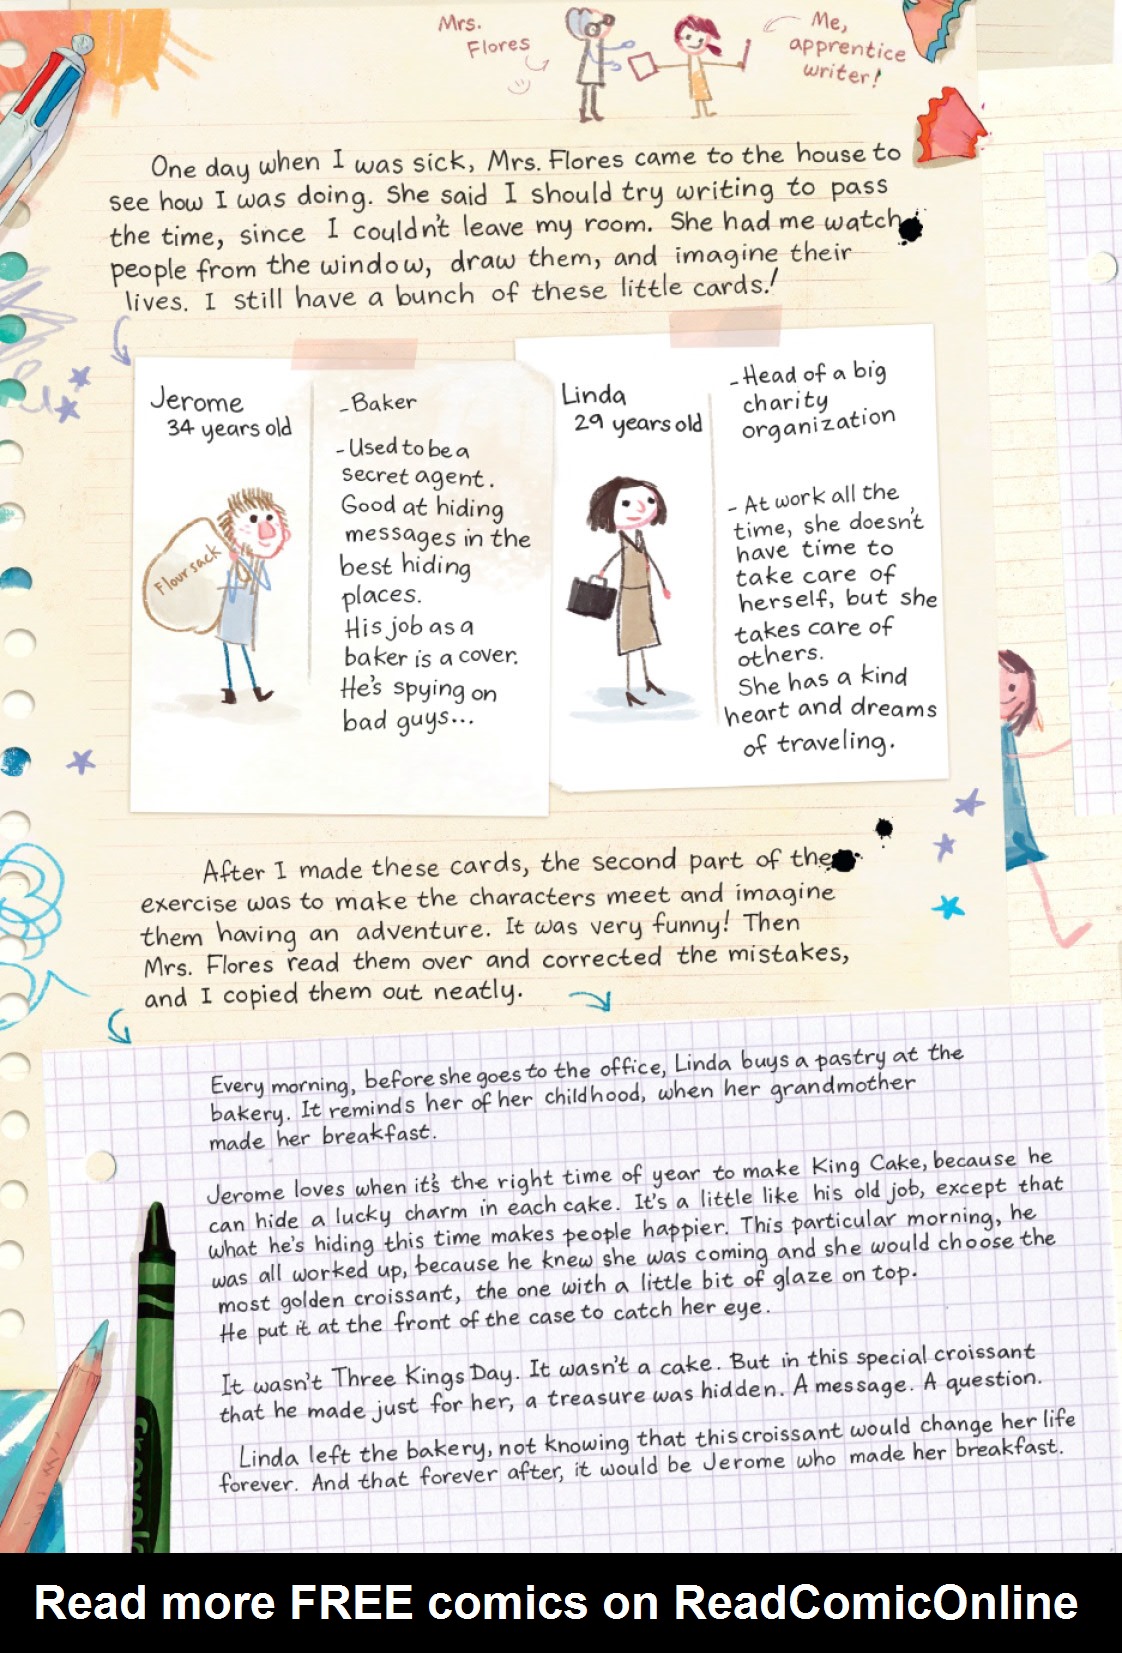 Mrs.
Flores
Me,
apprentice
writer!
One day when I was sick, Mrs. Flores came to the house to
see how I was doing. She said I should try writing to pass
the time, since I couldn't leave my room. She had me watch
people from the window, draw them, and imagine their
lives. I still have a bunch of these little cards!
Jerome
34 years old
Flour sack
-Baker
-Used to be a
secret agent.
Good at hiding
messages in the
best hiding
places.
His job as a
baker is a cover.
He's spying on
bad guys...
Linda
29 years old
-Head of a big
charity
organization
-At work all the
time, she doesn't
have time to
take care of
herself, but she
takes care of
others.
She has a kind
heart and dreams
of traveling.
After I made these cards, the second part of the
exercise was to make the characters meet and imagine
them having an adventure. It was very funny! Then
Mrs. Flores read them over and corrected the mistakes,
and I copied them out neatly.
Every morning, before she goes to the office, Linda buys a pastry at the
bakery. It reminds her of her childhood, when her grandmother
made her breakfast.
Jerome loves when it's the right time of year to make King Cake, because he
can hide a lucky charm in each cake. It's a little like his old job, except that
what he's hiding this time makes people happier. This particular morning, he
was all worked up, because he knew she was coming and she would choose the
most golden croissant, the one with a little bit of glaze on top.
He put it at the front of the case to catch her eye.
It wasn't Three Kings Day. It wasn't a cake. But in this special croissant
that he made just for her, a treasure was hidden. A message. A question.
Linda left the bakery, not knowing that this croissant would change her life
forever. And that forever after, it would be Jerome who made her breakfast.
Read more FREE comics on ReadComicOnline